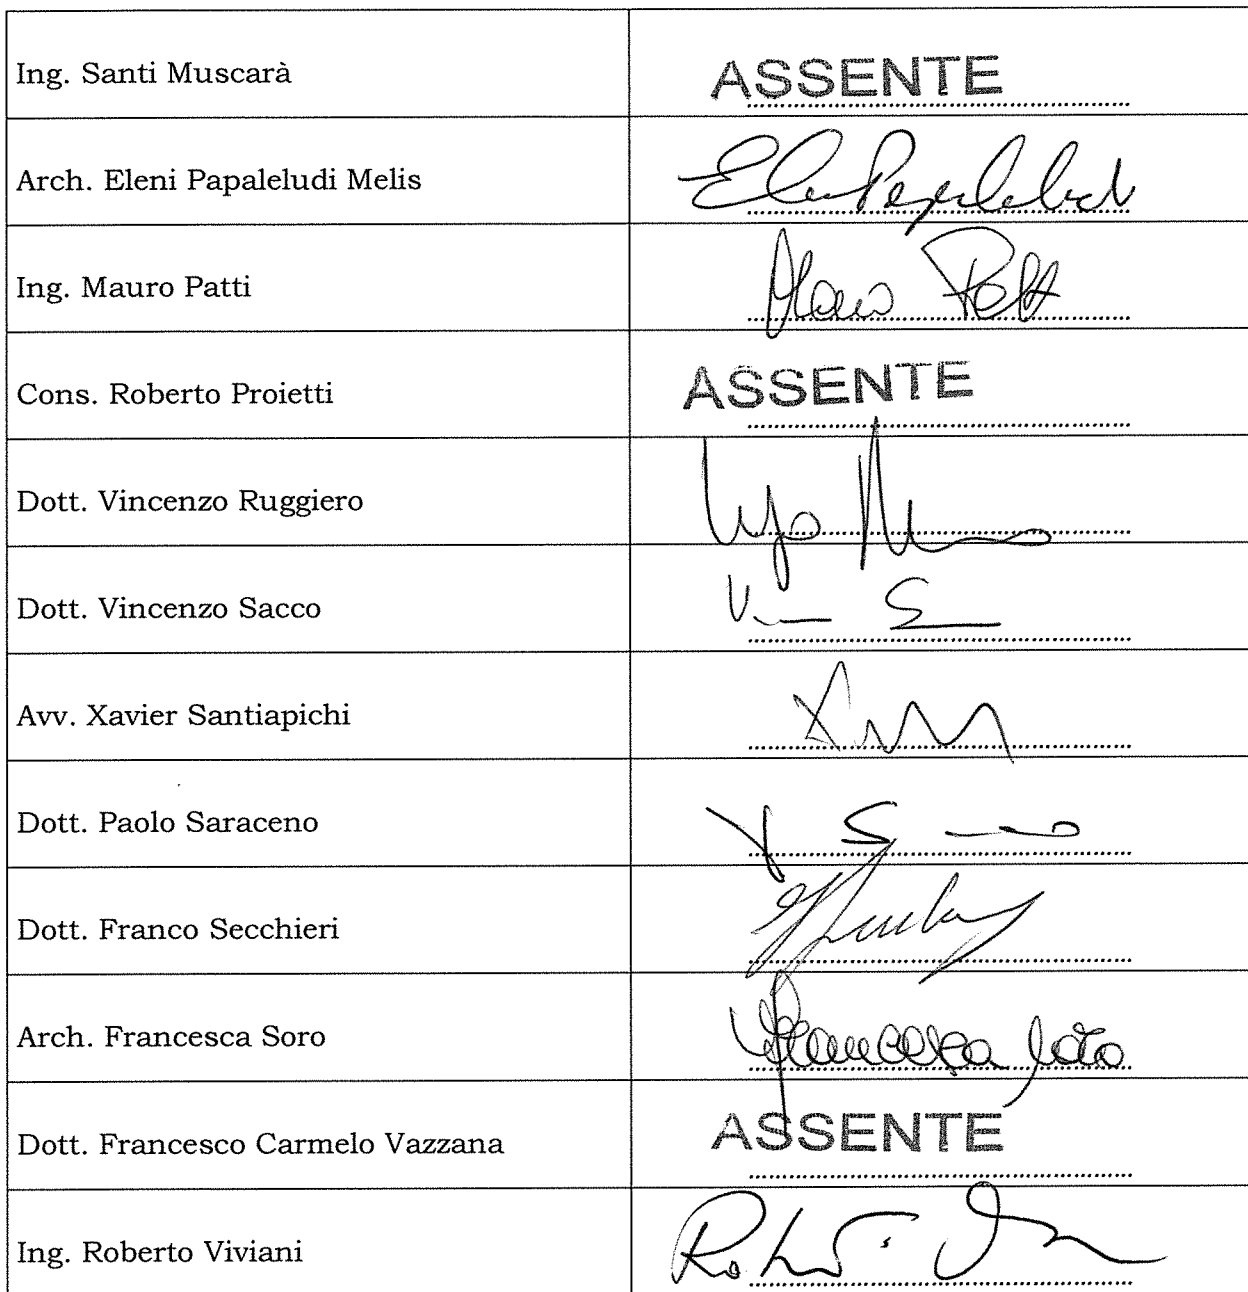 Ing. Santi Muscarà ASSENTE
Arch. Eleni Papaleludi Melis
Ing. Mauro Patti
Cons. Roberto Proietti ASSENTE
Dott. Vincenzo Ruggiero
Dott. Vincenzo Sacco
Avv. Xavier Santiapichi
Dott. Paolo Saraceno
Dott. Franco Secchieri
Arch. Francesca Soro Francesca Soro
Dott. Francesco Carmelo Vazzana ASSENTE
Ing. Roberto Viviani